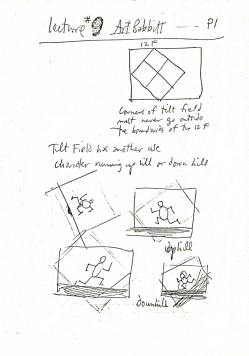 Lecture #9 Art Babbitt - P1
12 F
Corners of tilt field
must never go outside
the boundaries of the 12 F
Tilt Field has another use
Character running up hill or down hill
uphill
downhill